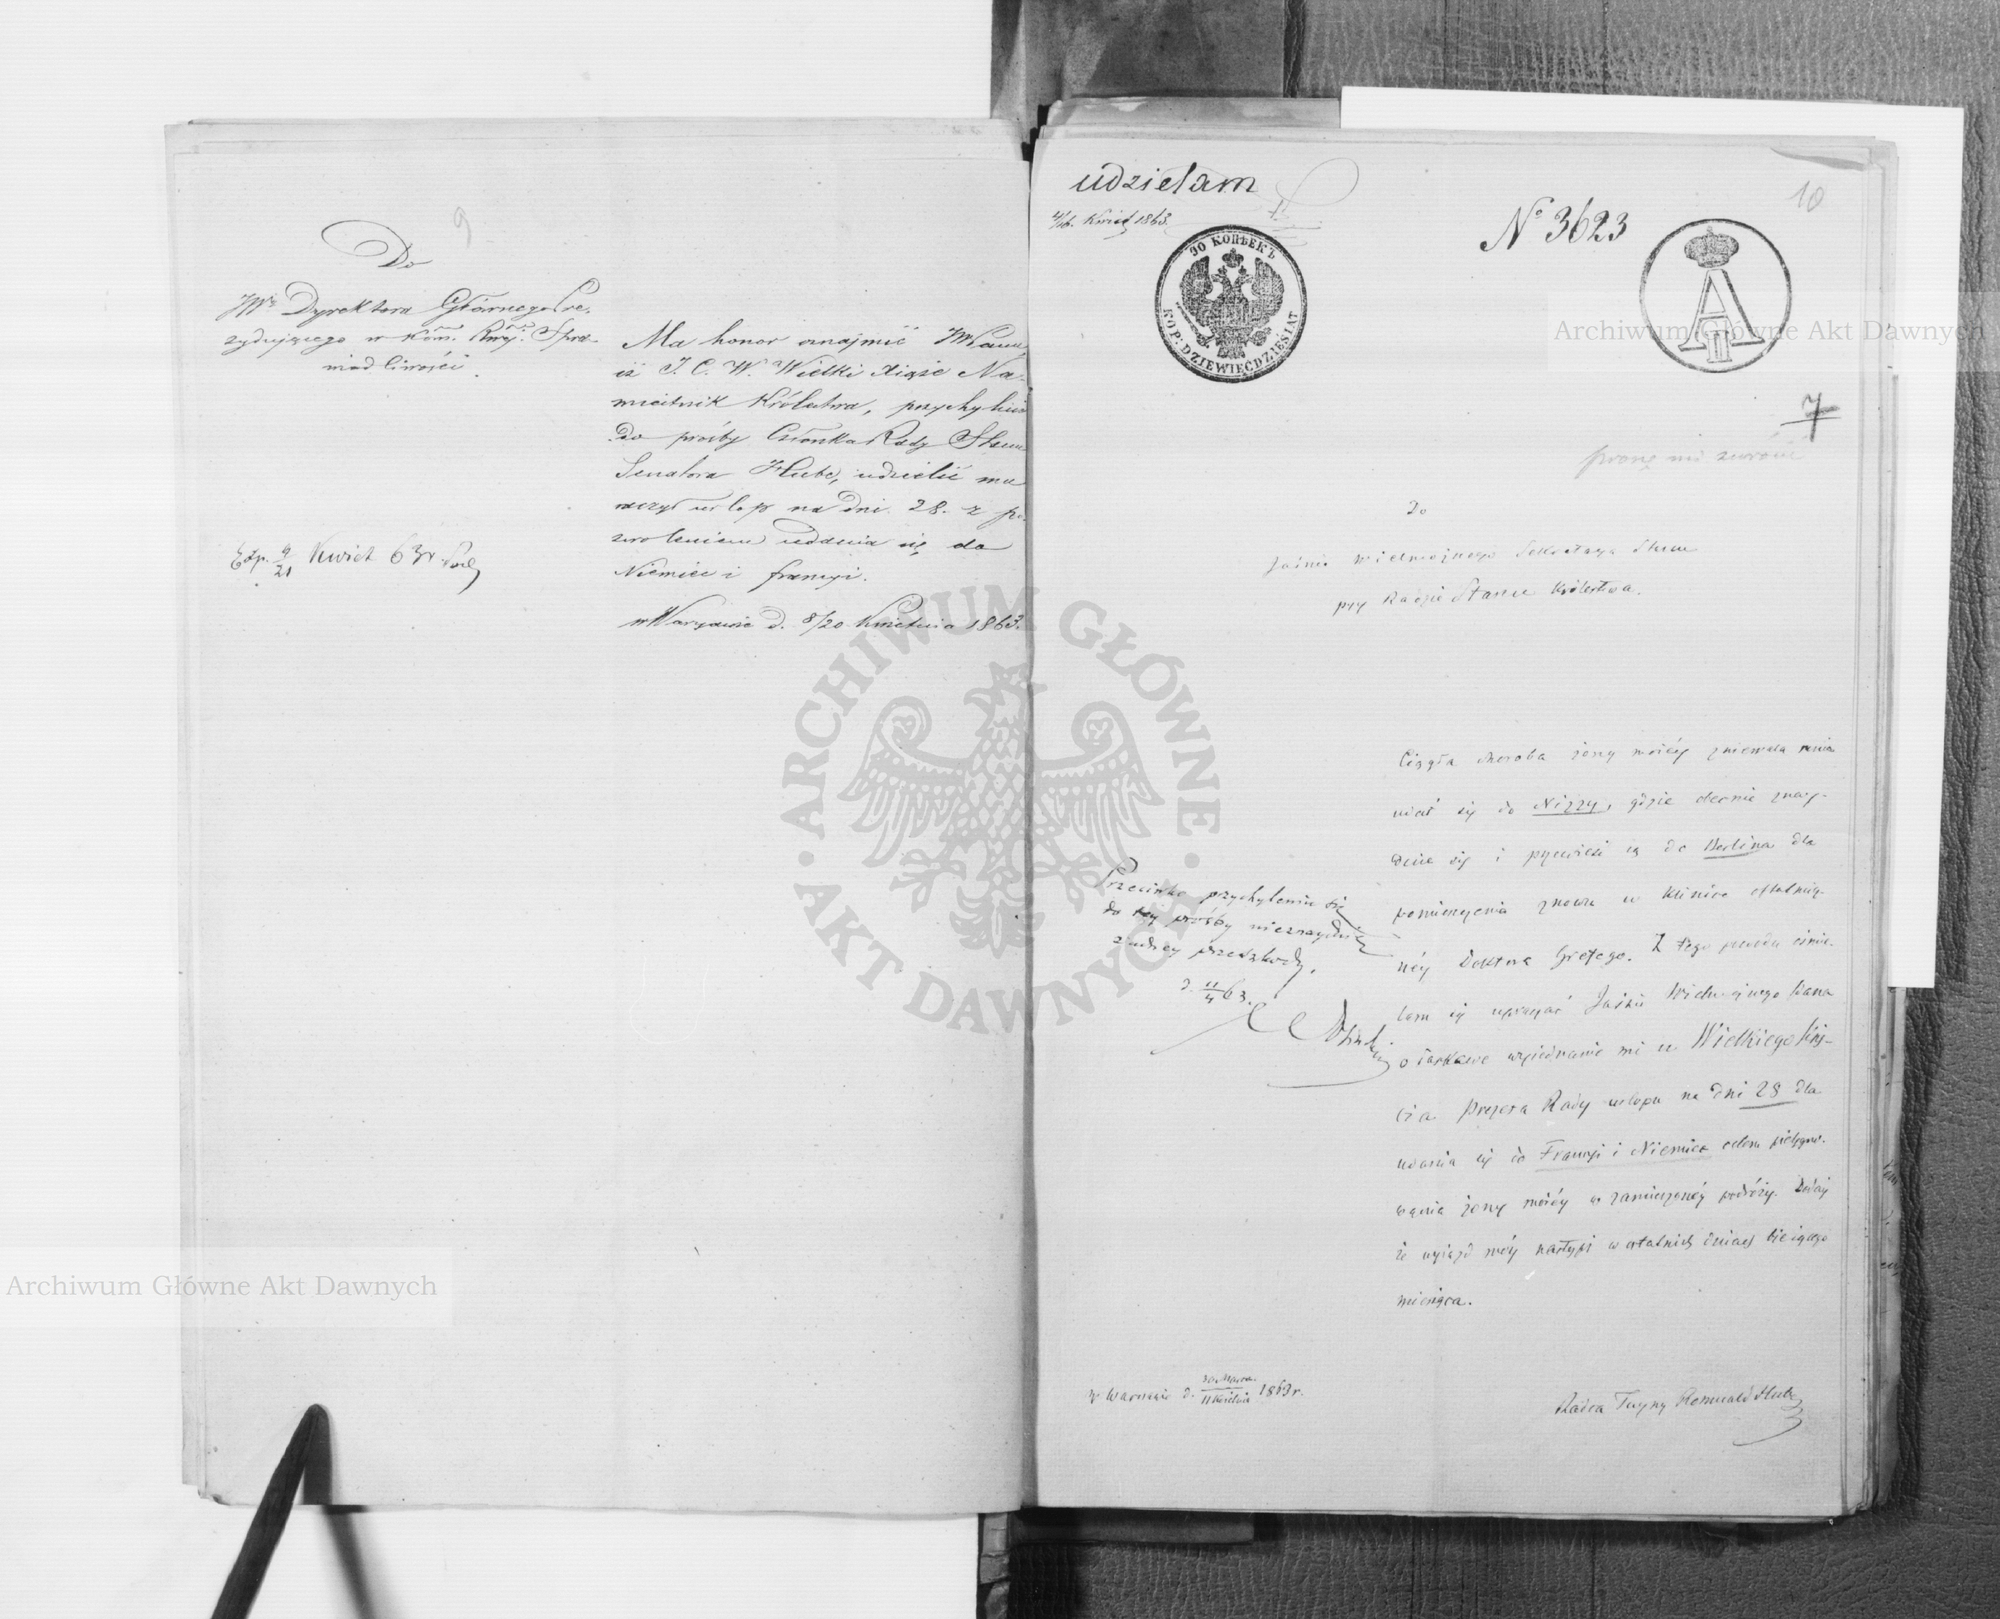 9
Do
JWo Dyrektora Głównego Pre-
zydującego w Kom. Rząj. Spra-
wiedliwości.
Ma honor oznajmić JWPanu,
iż J. C. W. Wielki Xiąże Na-
miestnik Królestwa, przychyliwszy
do prośby Członka Rady Stanu
Senatora Hube, udzielić mu
raczył urlop na dni 28. z po-
zwoleniem udania się do
Niemiec i francyi.
w Warszawie d. 8/20 Kwietnia 1863.
Exp. 9/21 Kwiet 63r
udzielam
4/16. Kwiet 1863.
90 КОПѢЕКЪ
KOP: DZIEWIĘĆDZIESIĄT
No 3623
10
A II
7
proszę mi zwrócić
Do
Jaśnie Wielmożnego Sekretarza Stanu
przy Radzie Stanu Królestwa.
Ciągła choroba żony moiéy zniewala mnie
udać się do Nizzy, gdzie obecnie znay-
duie się i przewieść ią do Berlina dla
pomieszczenia znowu w Klinice
néy Doktora Grefego. Z tego powodu ośmie-
lam się upraszać Jaśnie Wielmożnego Pana
o łaskawe wyiednanie mi u Wielkiego Xię-
cia Prezesa Rady urlopu na dni 28 dla
udania się do Francyi i Niemiec celem pielęgno-
wania żony moiéy w zamierzonéy podróży. Dodaię
że wyiazd móy nastąpi w ostatnich dniach bieżącego
miesiąca.
Przeciwko przychyleniu się
do tej prośby nieznayduię
żadney przeszkody.
d. 11/4 63.
w Warszawie d. 30 Marca/11 Kwietnia 1863 r.
Radca Tayny Romuald Hube
ARCHIWUM GŁÓWNE
AKT DAWNYCH
Archiwum Główne Akt Dawnych
Archiwum Główne Akt Dawnych